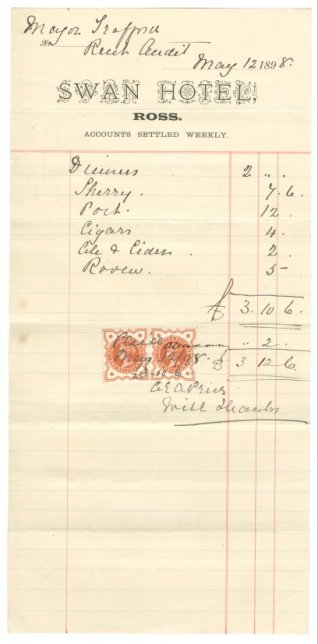 Major Trafford
Rent Audit
May 12 1898.
SWAN HOTEL,
ROSS.
ACCOUNTS SETTLED WEEKLY.
Dinners 2 " "
Sherry. 7. 6.
Port. 12.
Cigars 4.
Ale & Cider. 2.
Room. 5 –
£ 3. 10 6.
" 2 .
£ 3 12 6.
With Thanks